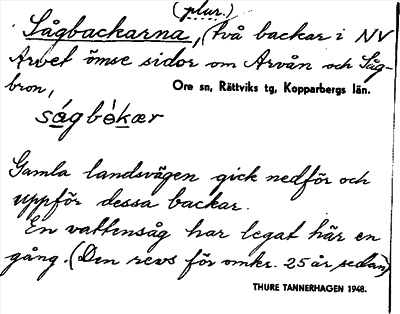 (plur.)
Sågbackarna, (två backar i NV
Arvet ömse sidor om Arvån och Såg-
bron,
Ore sn, Rättviks tg, Kopparbergs län.
ságbèkær
Gamla landsvägen gick nedför och
uppför dessa backar.
En vattensåg har legat här en
gång. (Den revs för omkr. 25 år sedan)
THURE TANNERHAGEN 1948.